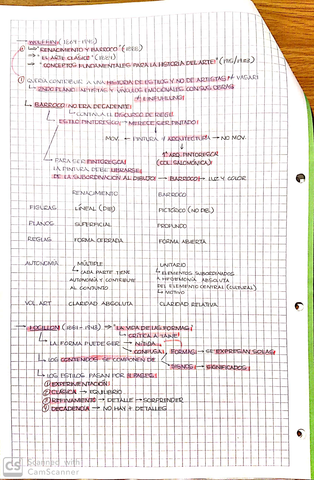 → WÖLFFLIN (1864-1945)
→ "RENACIMIENTO Y BARROCO" (1888)
→ "EL ARTE CLÁSICO" (1899)
→ "CONCEPTOS FUNDAMENTALES PARA LA HISTORIA DEL ARTE" (1915/1922)
QUERÍA CONTRIBUIR A UNA HISTORIA DE ESTILOS Y NO DE ARTISTAS ≠ VASARI
2NDO PLANO: ARTISTAS Y VÍNCULOS EMOCIONALES CON SUS OBRAS
≠ EINFÜHLUNG
→ BARROCO: NO ERA DECADENTE!
CONTINÚA EL DISCURSO DE RIEGL
ESTILO PINTORESCO: "MERECE SER PINTADO"
MOV. ← PINTURA ≠ ARQUITECTURA → NO MOV.
↑ ARQ. PINTORESCA
(COL. SALOMÓNICA)
PARA SER PINTORESCA
LA PINTURA DEBE LIBERARSE
DE LA SUBORDINACIÓN AL DIBUJO → BARROCO → LUZ Y COLOR
RENACIMIENTO BARROCO
FIGURAS LINEAL (DIB) PICTÓRICO (NO DIB.)
PLANOS SUPERFICIAL PROFUNDO
REGLAS FORMA CERRADA FORMA ABIERTA
AUTONOMÍA MÚLTIPLE UNITARIO
CADA PARTE TIENE ELEMENTOS SUBORDINADOS
AUTONOMÍA Y CONTRIBUYE A HEGEMONÍA ABSOLUTA
AL CONJUNTO DEL ELEMENTO CENTRAL (CULTURAL)
MOTIVO
VOL. ART CLARIDAD ABSOLUTA CLARIDAD RELATIVA
→ FOCILLON (1881-1943) → "LA VIDA DE LAS FORMAS"
CRÍTICA A TAINE
LA FORMA PUEDE SER → NÍTIDA
CONFUSA FORMAS → SE EXPRESAN SOLAS
LOS CONTENIDOS SE COMPONEN DE
SIGNOS → SIGNIFICADOS
LOS ESTILOS PASAN POR 4 FASES:
① EXPERIMENTACIÓN
② CLÁSICA → EQUILIBRIO
③ REFINAMIENTO → DETALLE → SORPRENDER
④ DECADENCIA → NO HAY + DETALLES
CS Scanned with
CamScanner